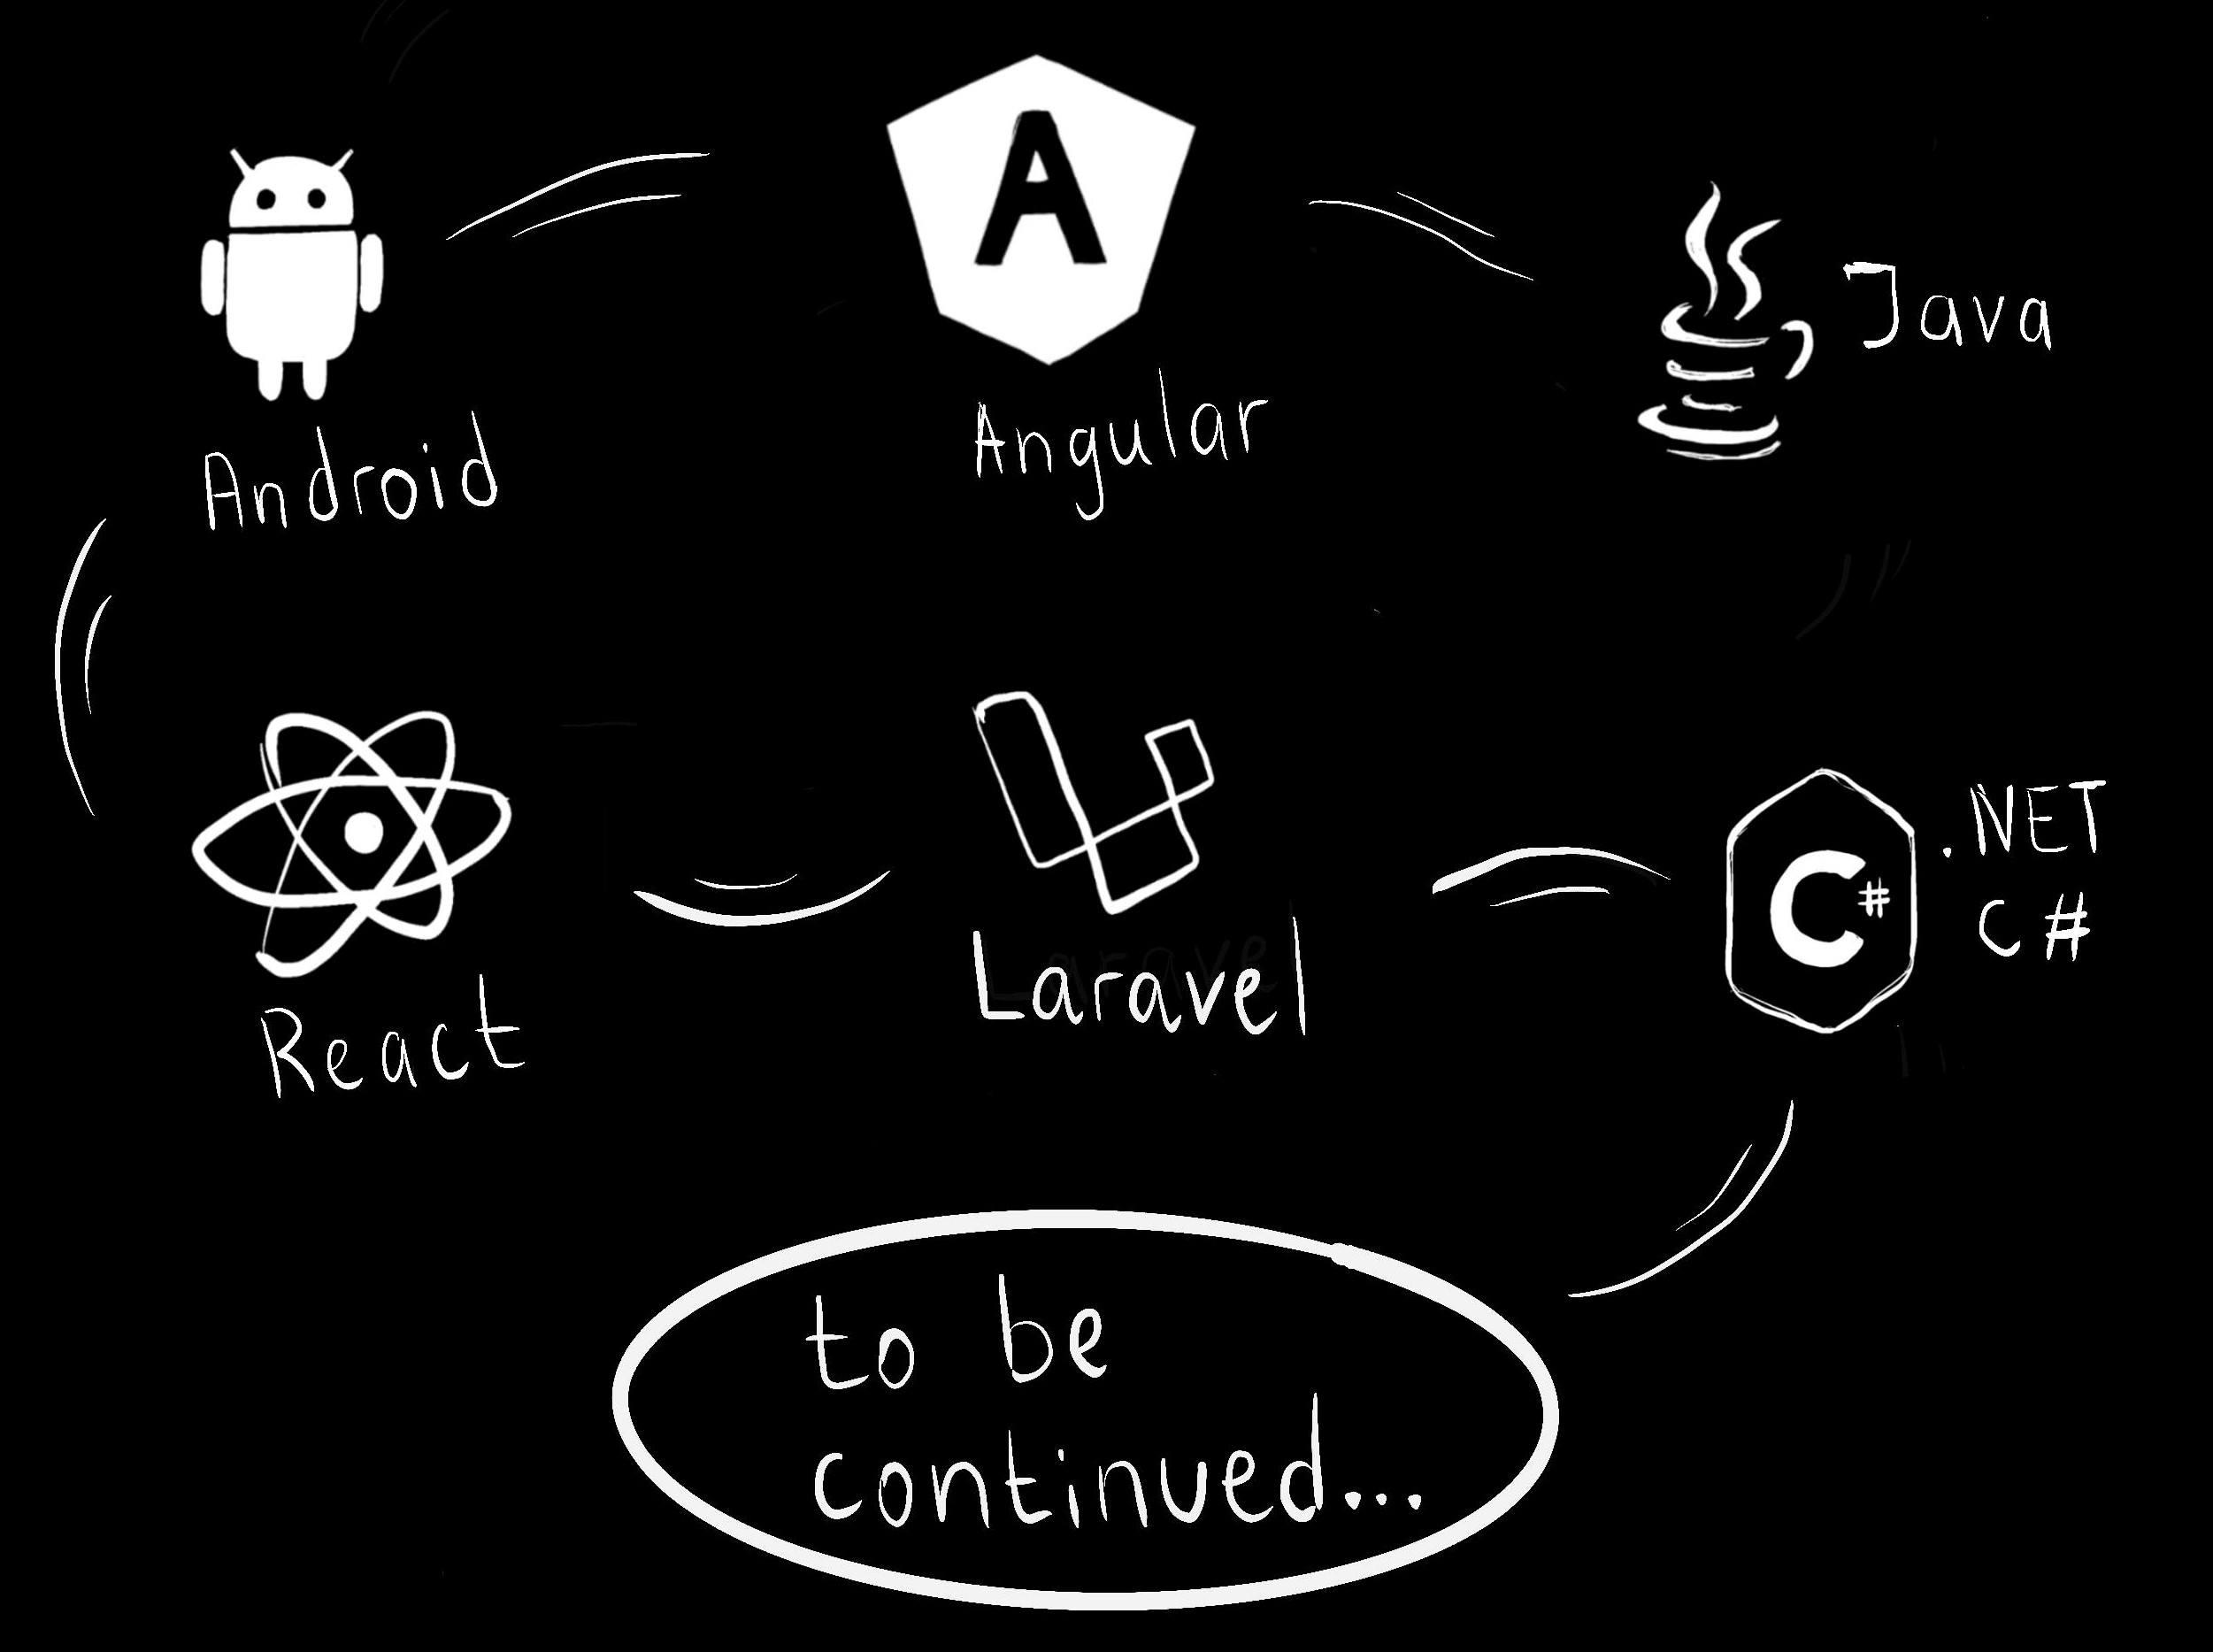 A
Android
Angular
Java
React
Laravel
C#
.NET
C#
to be
continued...